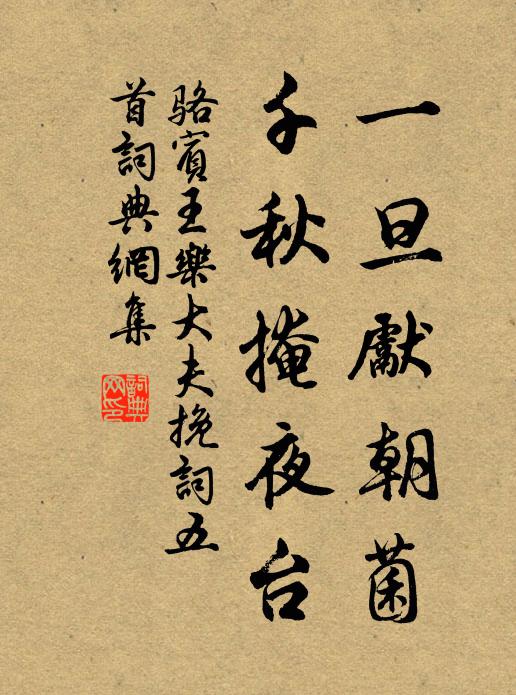 一旦獻朝菌
千秋掩夜台
駱賓王樂大夫挽詞五
首詞典網集
詞典
网印